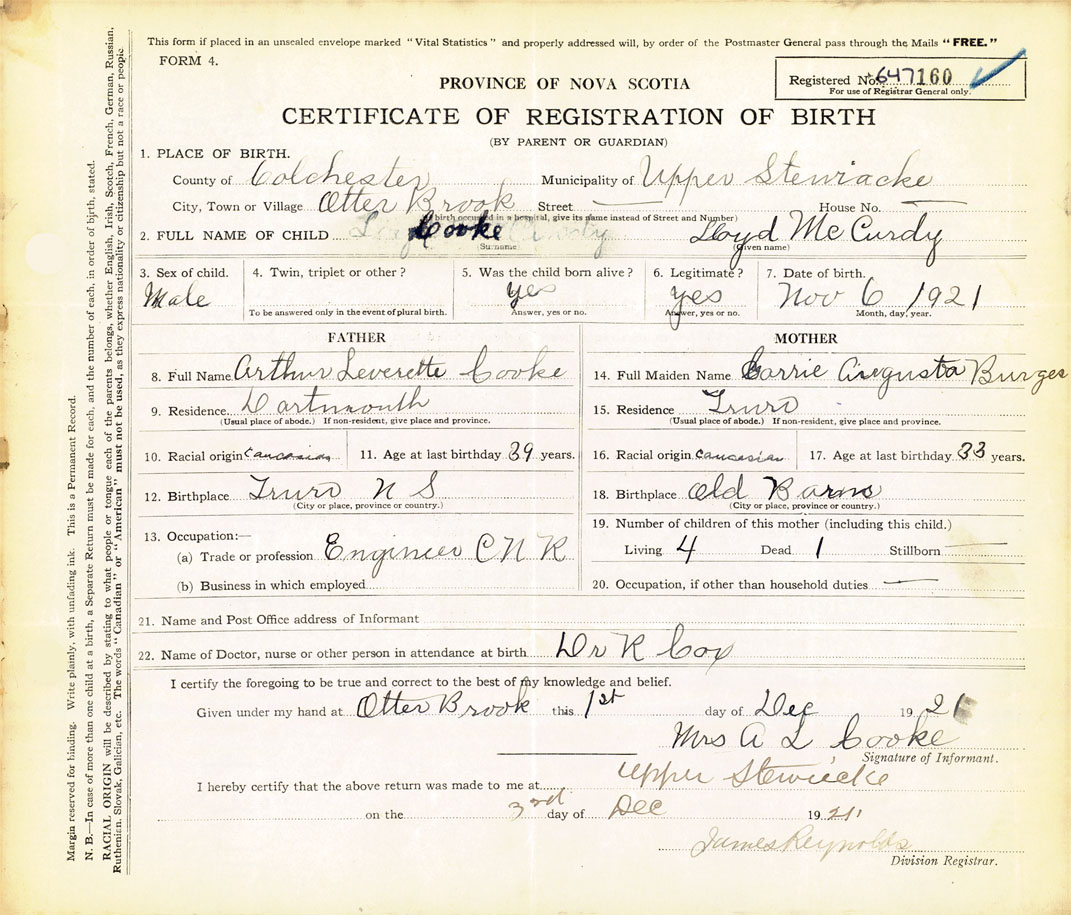 This form if placed in an unsealed envelope marked "Vital Statistics" and properly addressed will, by order of the Postmaster General pass through the Mails "FREE."
FORM 4.
PROVINCE OF NOVA SCOTIA
Registered No. 647160
For use of Registrar General only.
CERTIFICATE OF REGISTRATION OF BIRTH
(BY PARENT OR GUARDIAN)
1. PLACE OF BIRTH.
County of Colchester Municipality of Upper Stewiacke
City, Town or Village Otter Brook Street — House No. —
birth occurred in a hospital, give its name instead of Street and Number)
2. FULL NAME OF CHILD Cooke Lloyd McCurdy
(Surname) (Given name)
3. Sex of child. 4. Twin, triplet or other? 5. Was the child born alive? 6. Legitimate? 7. Date of birth.
Male yes yes Nov 6 1921
To be answered only in the event of plural birth. Answer, yes or no. Answer, yes or no. Month, day, year.
FATHER
8. Full Name Arthur Leverette Cooke
9. Residence Dartmouth
(Usual place of abode.) If non-resident, give place and province.
10. Racial origin caucasian 11. Age at last birthday 39 years.
12. Birthplace Truro N S
(City or place, province or country.)
13. Occupation:—
(a) Trade or profession Engineer C N R
(b) Business in which employed
MOTHER
14. Full Maiden Name Carrie Augusta Burges
15. Residence Truro
(Usual place of abode.) If non-resident, give place and province.
16. Racial origin caucasian 17. Age at last birthday 33 years.
18. Birthplace Old Barns
(City or place, province or country.)
19. Number of children of this mother (including this child.)
Living 4 Dead 1 Stillborn —
20. Occupation, if other than household duties —
21. Name and Post Office address of Informant
22. Name of Doctor, nurse or other person in attendance at birth Dr R Cox
I certify the foregoing to be true and correct to the best of my knowledge and belief.
Given under my hand at Otter Brook this 1st day of Dec 1921
Mrs A L Cooke
Signature of Informant.
I hereby certify that the above return was made to me at Upper Stewiecke
on the 3rd day of Dec 1921
James Reynolds
Division Registrar.
Margin reserved for binding. Write plainly, with unfading ink. This is a Permanent Record.
N. B.—In case of more than one child at a birth, a Separate Return must be made for each, and the number of each, in order of birth, stated.
RACIAL ORIGIN will be described by stating to what people or tongue each of the parents belongs, whether English, Irish, Scotch, French, German, Russian,
Ruthenian, Slovak, Galician, etc. The words "Canadian" or "American" must not be used, as they express nationality or citizenship but not a race or people